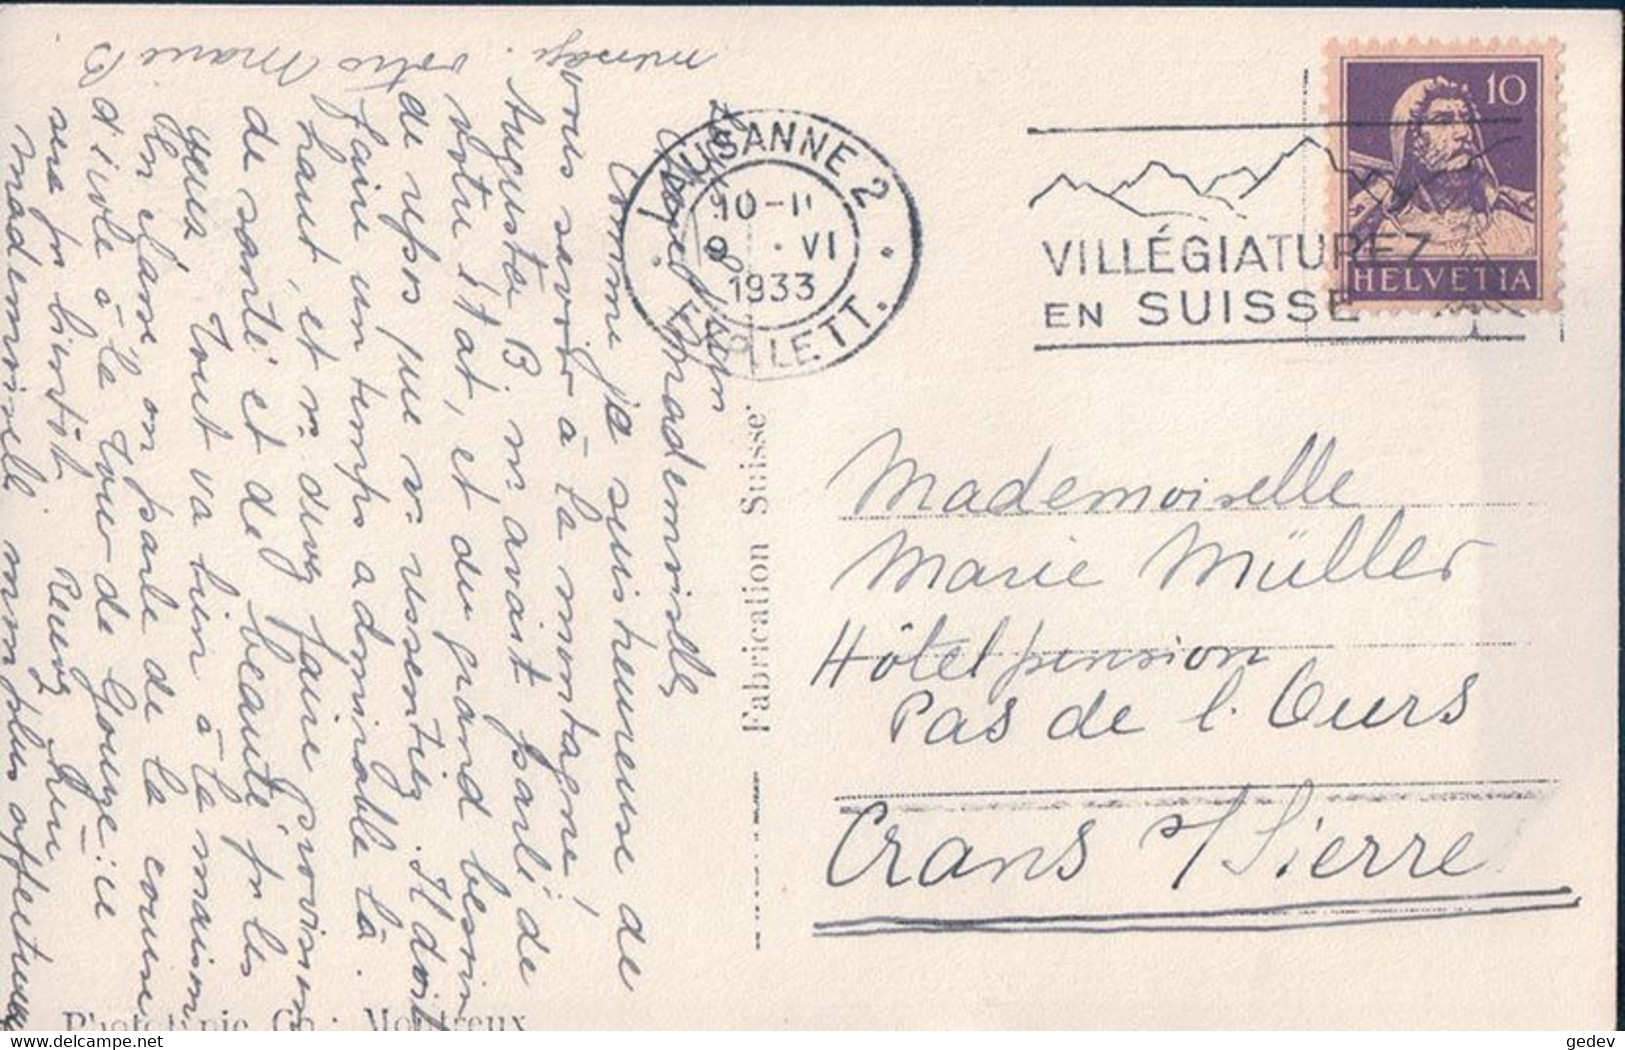 LAUSANNE 2
10-11
9 . VI
1933
EXP. LETT.
VILLÉGIATUREZ
EN SUISSE
10
HELVETIA
Mademoiselle
Marie Müller
Hôtel pension
Pas de l'Ours
Crans s/ Sierre
Fabrication Suisse.
Phototypie Co. Montreux
Chère Mademoiselle
Comme je suis heureuse de
vous savoir à la montagne!
Augusta B. m'avait parlé de
votre état, et du grand besoin
de repos que vs ressentiez. Il doit
faire un temps admirable là-
haut, et vs devez faire provision
de santé et de beauté pr les
yeux. Tout va bien à la maison
En classe, on parle de la course
d'école à la Tour de Gourze: ce
sera pr bientôt. Recevez chère
mademoiselle mon plus affectueux
message. votre Marie B
www.delcampe.net
gedev